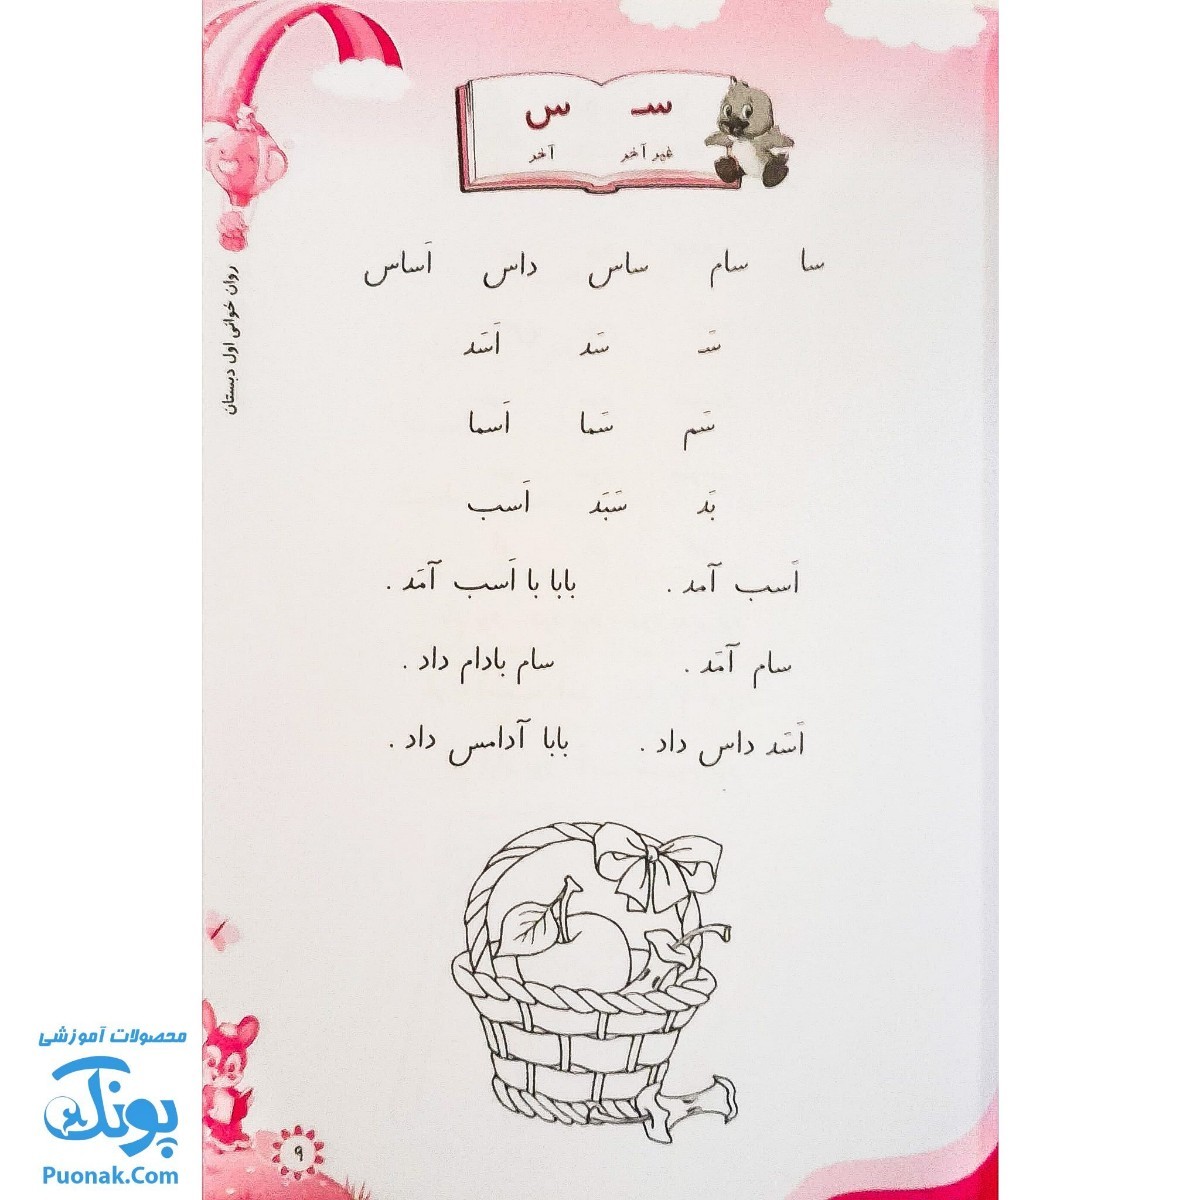 سـ س
غیر آخر آخر
سا سام ساس داس اَساس
سَـ سَد اَسَد
سَم سَما اَسما
بَد سَبَد اَسب
اَسب آمد . بابا با اَسب آمَد .
سام آمَد . سام بادام داد .
اَسَد داس داد . بابا آدامس داد .
روان خوانی اول دبستان
۹
محصولات آموزشی
پونک
Puonak.Com